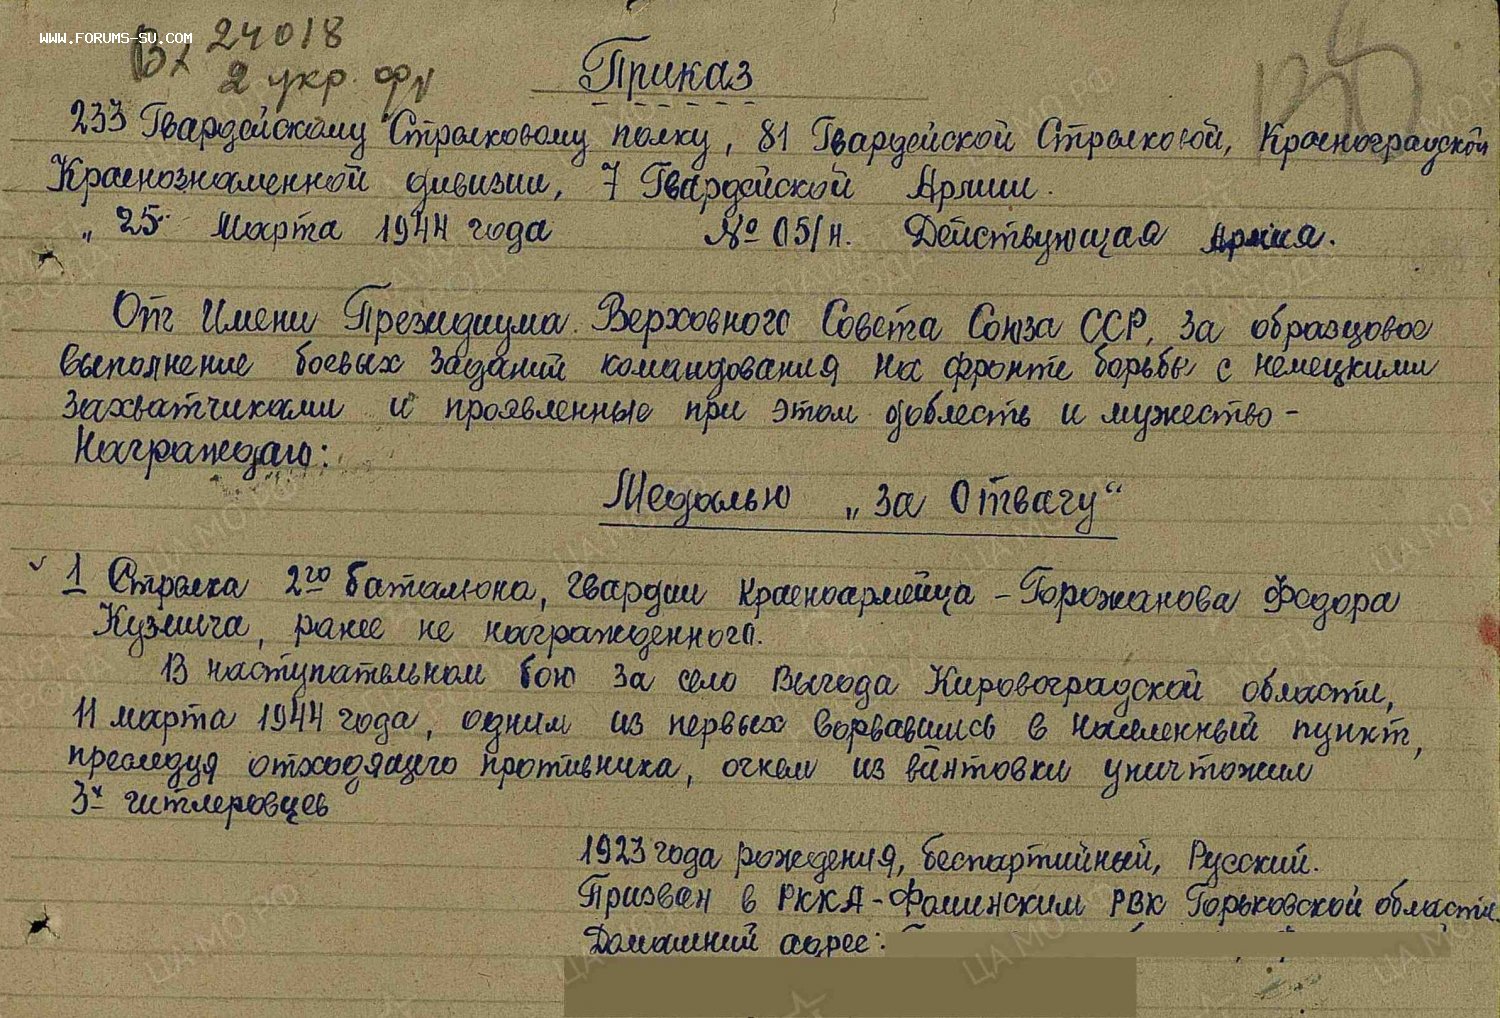 WWW.FORUMS-SU.COM
Вх 24018
2 укр. фр
Приказ
233 Гвардейскому Стрелковому полку, 81 Гвардейской Стрелковой, Красноградской
Краснознаменной дивизии, 7 Гвардейской Армии.
„25" Марта 1944 года № 05/н. Действующая Армия.
От Имени Президиума Верховного Совета Союза ССР, За образцовое
выполнение боевых заданий командования на фронте борьбы с немецкими
захватчиками и проявленные при этом доблесть и мужество -
Награждаю:
Медалью „За Отвагу"
1 Стрелка 2го баталиона, гвардии красноармейца - Горожанова Федора
Кузмича, ранее не награжденного.
В наступательном бою за село Выгода Кировоградской области,
11 марта 1944 года, одним из первых ворвавшись в населенный пункт,
преследуя отходящего противника, огнем из винтовки уничтожил
3х гитлеровцев
1923 года рождения, беспартийный, Русский.
Призван в РККА - Фоминским РВК Горьковской области
Домашний адрес: